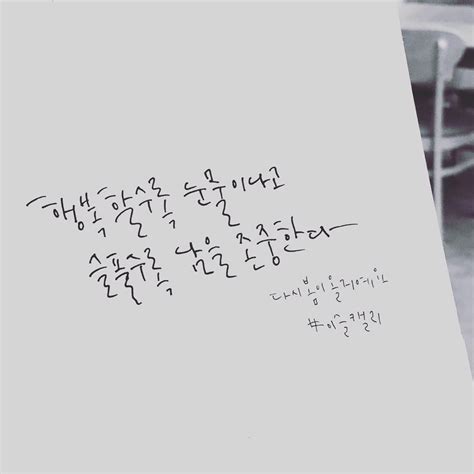 행복할수록 눈물이나고
슬플수록 남을 존중한다
다시봄이올거예요
#이슬캘리